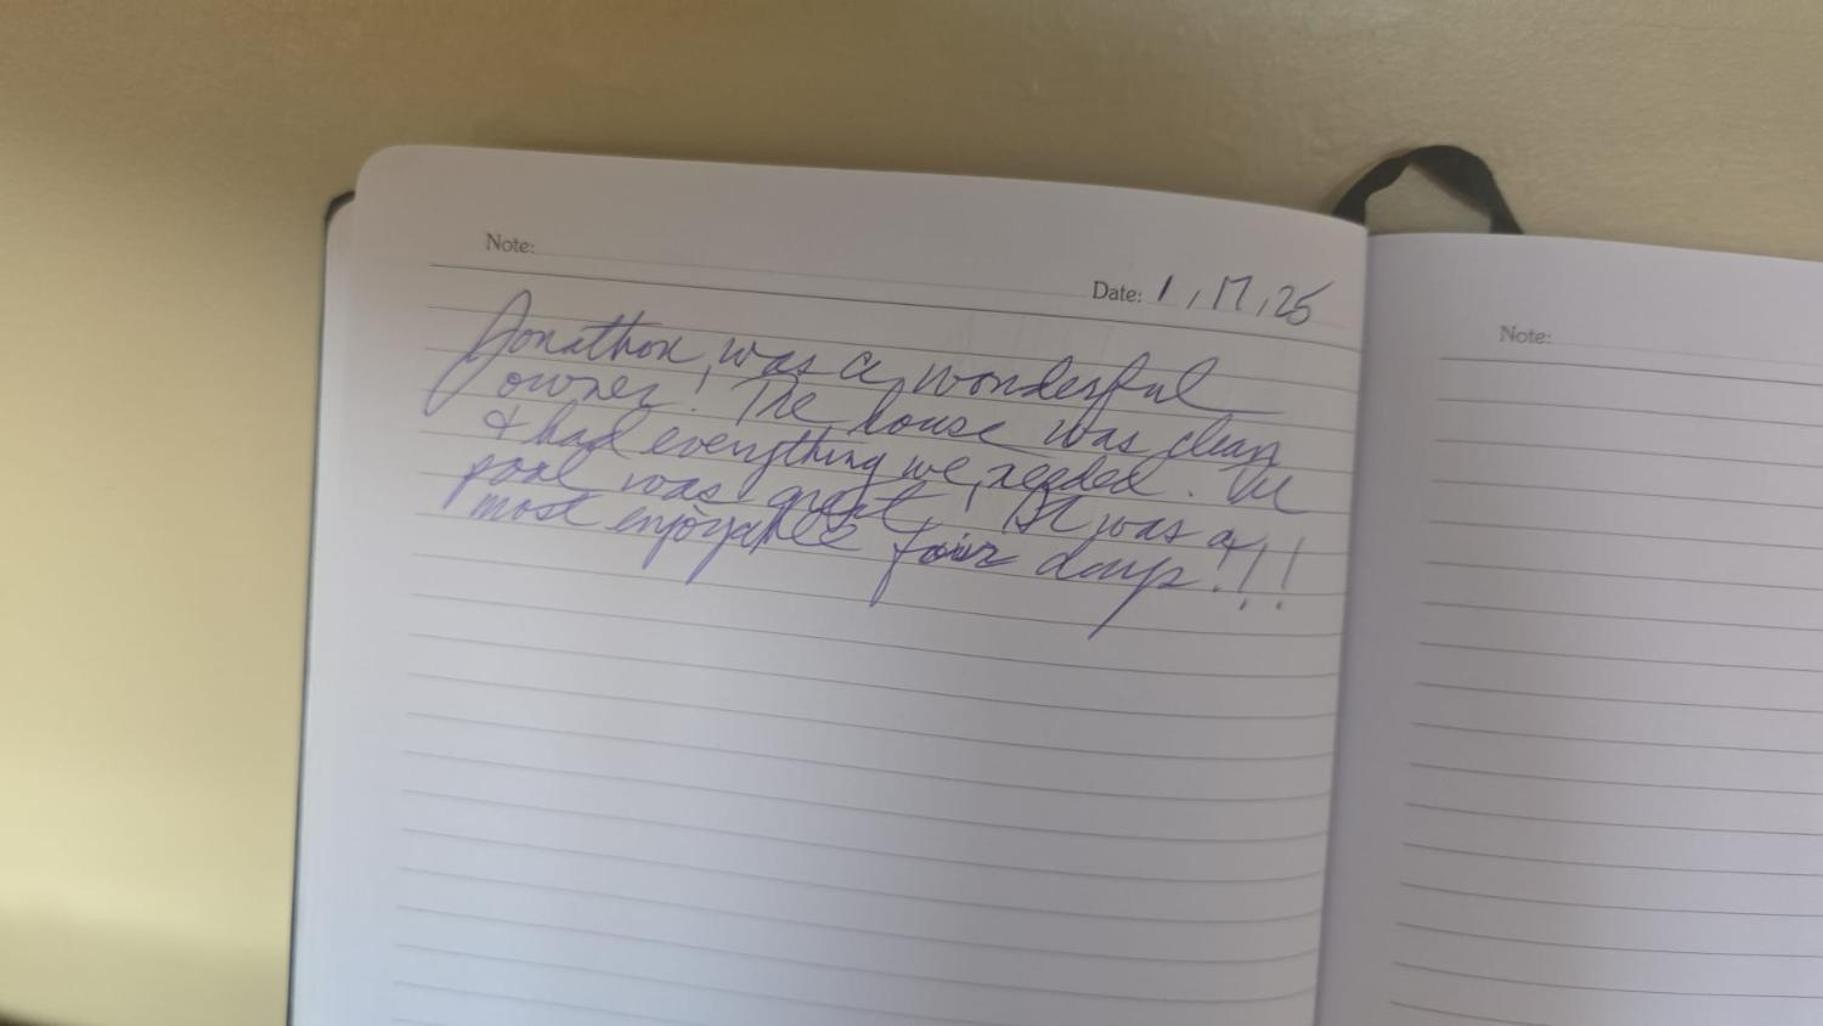 Note:
Date: 1, 17, 25
Jonathon was a wonderful
owner! The house was clean
& had everything we needed. The
pool was great! It was a
most enjoyable four days!!!
Note: